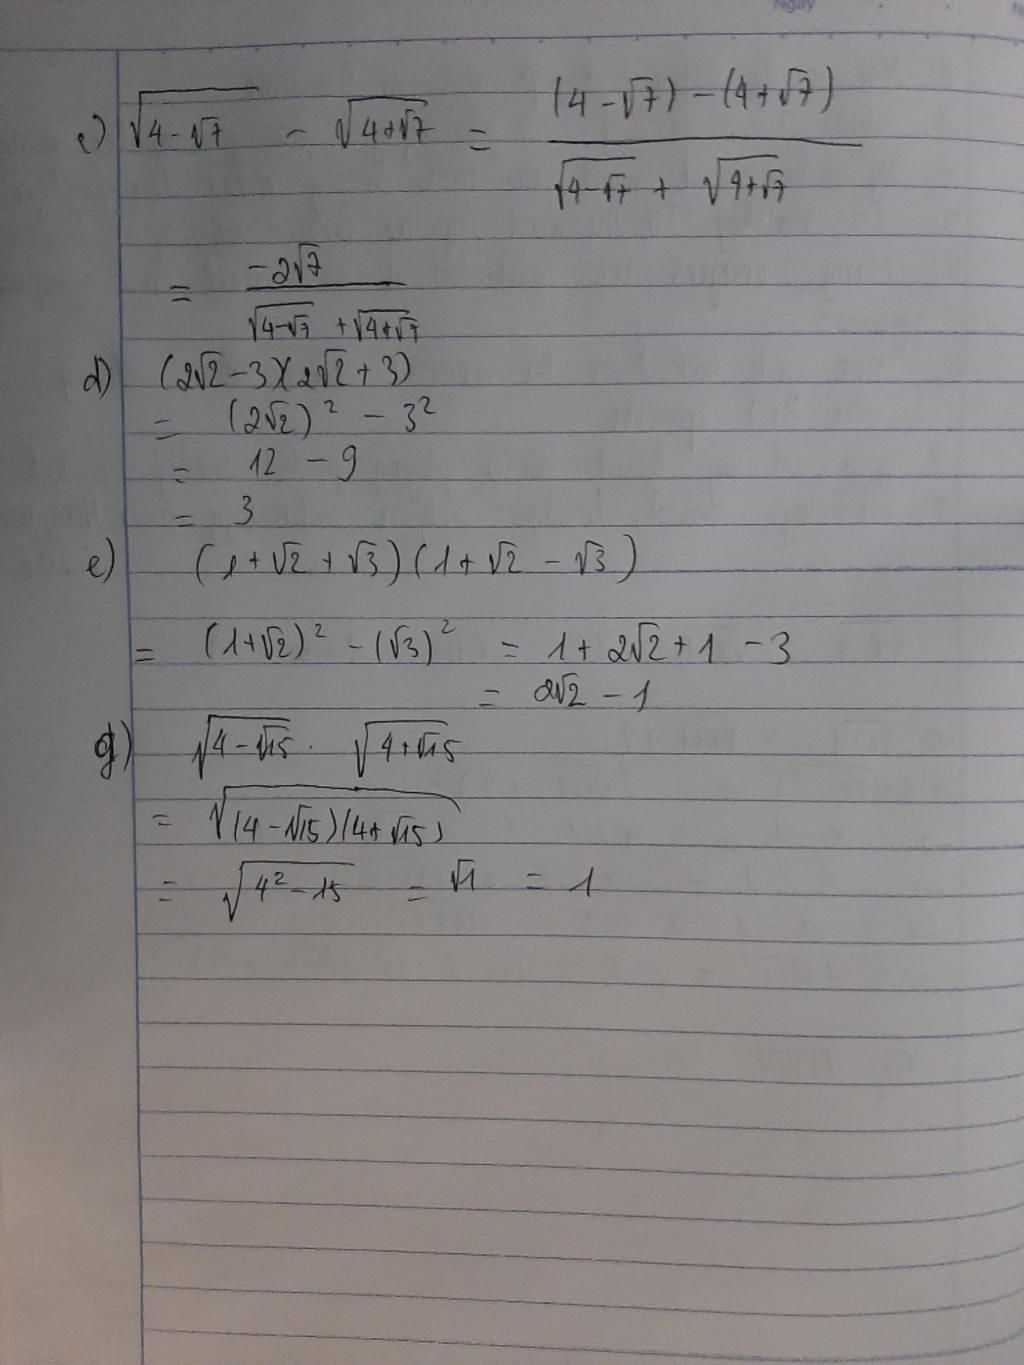 Ngày
c) √(4-√7) - √(4+√7) = ((4-√7) - (4+√7)) / (√(4-√7) + √(4+√7))
= (-2√7) / (√(4-√7) + √(4+√7))
d) (2√2-3)(2√2+3)
= (2√2)² - 3²
= 12 - 9
= 3
e) (1+√2+√3)(1+√2-√3)
= (1+√2)² - (√3)² = 1+2√2+1-3
= 2√2 - 1
g) √(4-√15) . √(4+√15)
= √((4-√15)(4+√15))
= √(4²-15) = √1 = 1